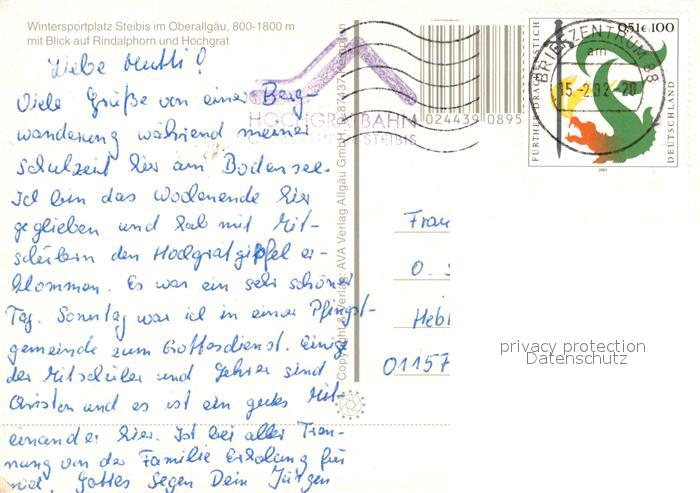 Wintersportplatz Steibis im Oberallgäu, 800-1800 m
mit Blick auf Rindalphorn und Hochgrat
Liebe Mutti!
Viele Grüße von einer Berg-
wanderung während meiner
Schulzeit hier am Bodensee.
Ich bin das Wochenende hier
geglieben und hab mit Mit-
schülern den Hochgratgipfel er-
klommen. Es war ein sehr schöner
Tag. Sonntag war ich in einer Pfingst-
gemeinde zum Gottesdienst. Einige
der Mitschüler und Lehrer sind
Christen und es ist ein gutes Mit-
einander hier. Ist bei aller Tren-
nung von der Familie Erholung für
mich. Gottes Segen Dein Jürgen
HOCHGRATBAHM
STEIBIS
Copyright & Verlag: AVA Verlag Allgäu GmbH, D-87437 Kempten
024439 0895
BRIEFZENTRUM 88
am
15.-2.02-20
FURTHER DRACHENSTICH
0,51€ 100
DEUTSCHLAND
2001
Frau
O.
Hebl
01157
privacy protection
Datenschutz